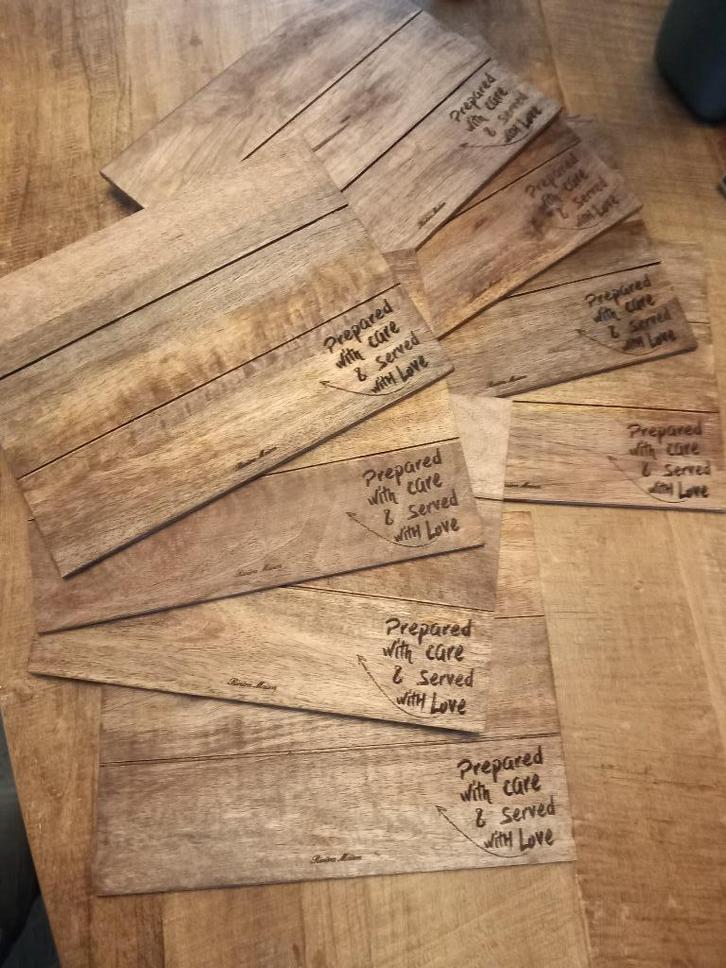 Prepared
with care
& Served
witH Love
Prepared
with care
& Served
witH Love
Prepared
with care
& Served
witH Love
Prepared
with care
& Served
witH Love
Prepared
with care
& Served
witH Love
Rivièra Maison
Prepared
with care
& Served
witH Love
Rivièra Maison
Prepared
with care
& Served
witH Love
Rivièra Maison
Prepared
with care
& Served
witH Love
Rivièra Maison